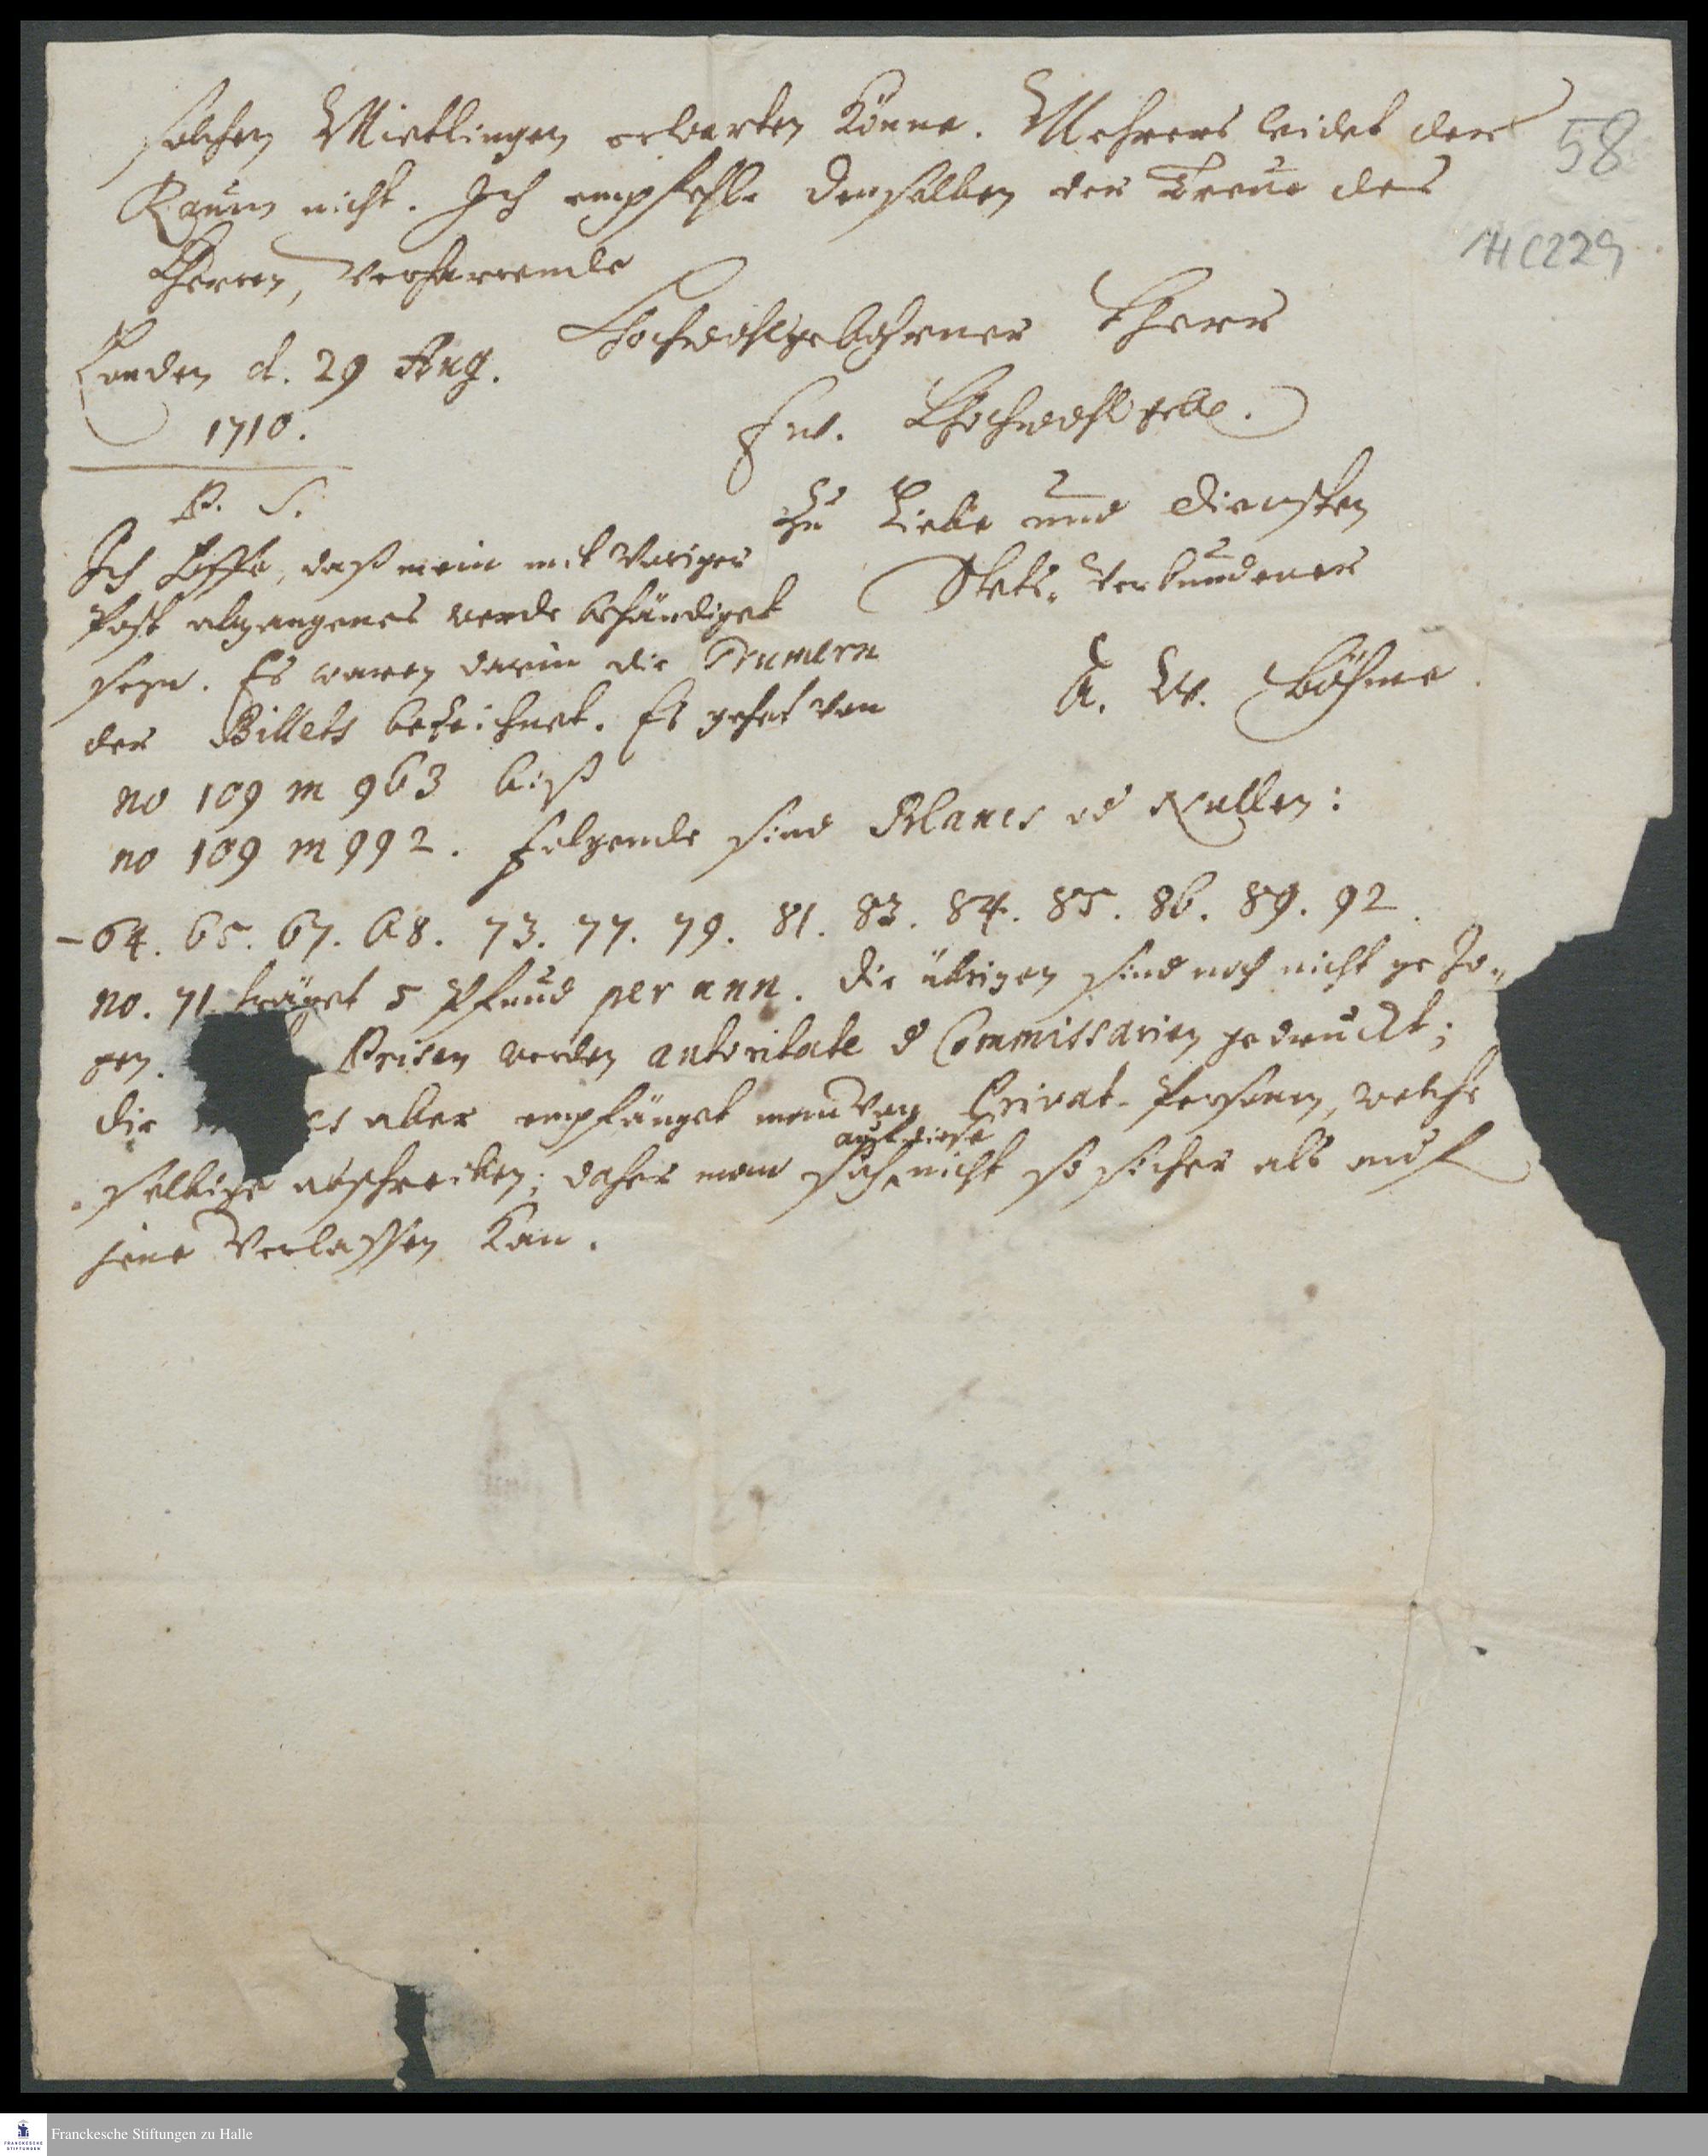 solchen Mietlingen erwarten könne. Mehrers leidet der
Raum nicht. Ich empfehle denselben der Treue des
Herren, verharrende
Hochwohlgebohrner Herr
Londen d. 29 Aug.
1710.
Ew. Hochwohlgebl.
Zu Liebe und Diensten
Stets-Verbundener
A. W. Böhme.
P. S.
Ich hoffe, daß mein mit voriger
Post abgangenes werde behändiget
seyn. Es waren darin die Numern
der Billets bezeichnet. Es gehet von
no 109 m 963 biß
no 109 m 992. folgende sind Blancs od Nullen:
-64. 65. 67. 68. 73. 77. 79. 81. 83. 84. 85. 86. 89. 92.
no. 71 träget 5 Pfund per ann. Die übrigen sind noch nicht gezo-
gen. Prisen werden autoritate d Commissarien gedruckt;
die es aber empfänget man von Privat-Personen, welche
selbige abschreiben; daher man sich auf diese nicht so sicher als auf
jene verlassen kan.
58
H C229
Franckesche Stiftungen zu Halle
FRANCKESCHE
STIFTUNGEN